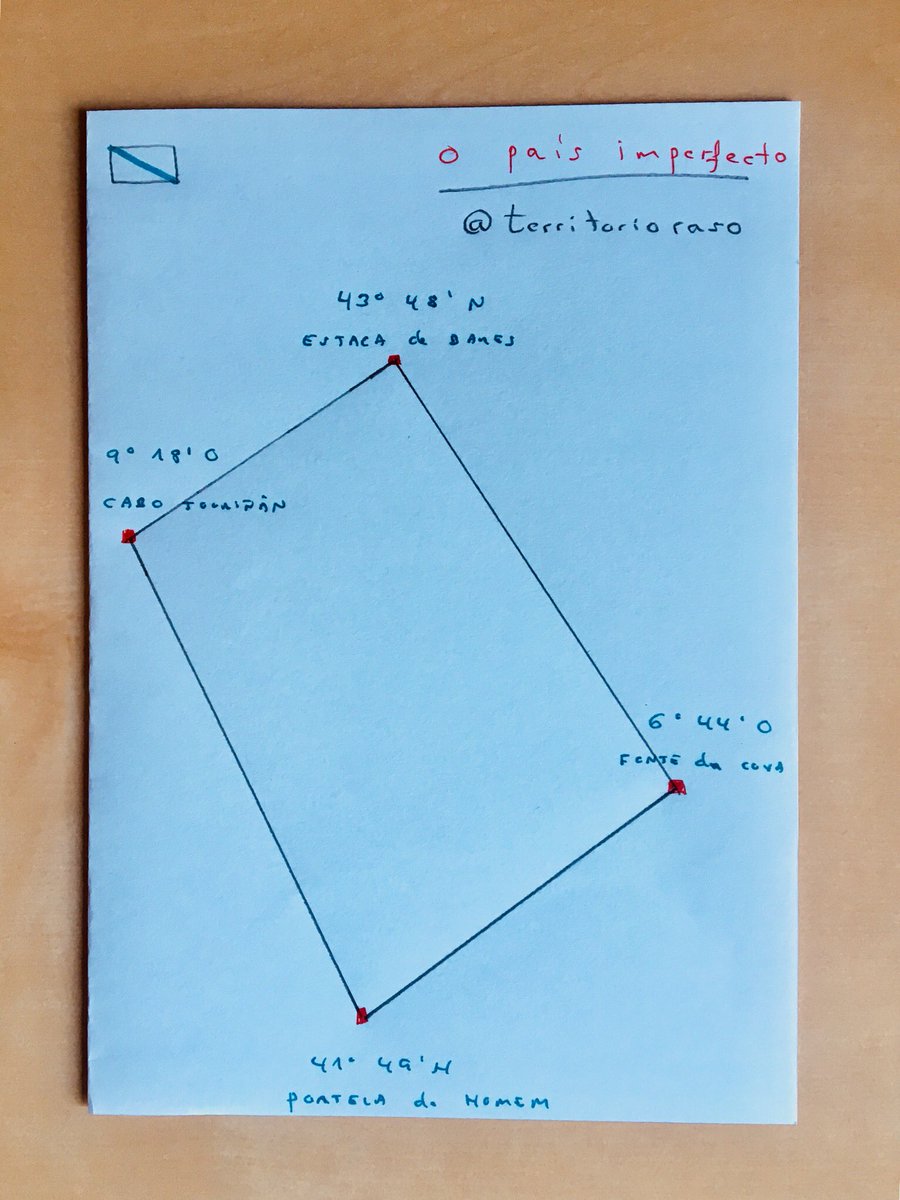 o país imperfecto
@territorioraso
43° 48' N
ESTACA de BARES
9° 18' O
CABO TOURIÑÁN
6° 44' O
FONTE da COVA
41° 49' N
PORTELA do HOMEM